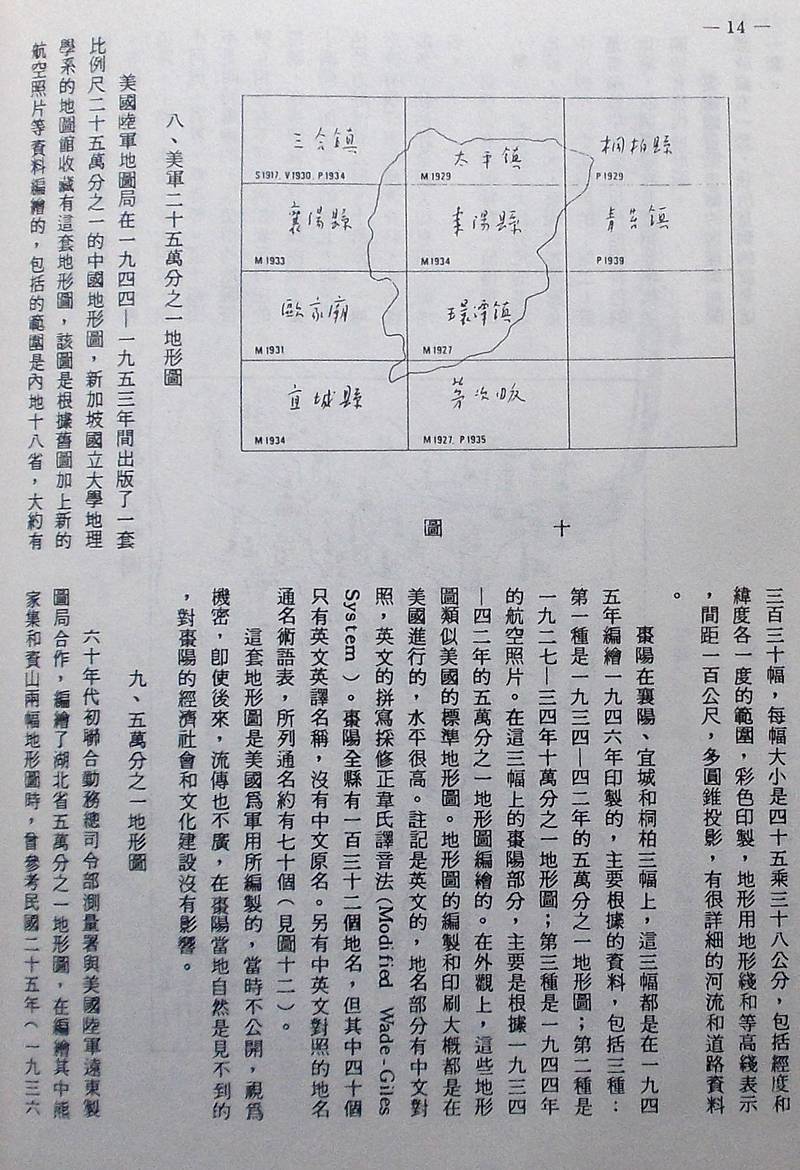 — 14 —
三合鎮
S1917, V1930, P1934
太平鎮
M1929
桐柏縣
P1929
襄陽縣
M1933
棗陽縣
M1934
青苔鎮
P1939
歐家廟
M1931
環潭鎮
M1927
宜城縣
M1934
茅次畈
M1927, P1935
圖十
八、美軍二十五萬分之一地形圖
美國陸軍地圖局在一九四四—一九五三年間出版了一套
比例尺二十五萬分之一的中國地形圖，新加坡國立大學地理
學系的地圖館收藏有這套地形圖，該圖是根據舊圖加上新的
航空照片等資料編繪的，包括的範圍是內地十八省，大約有
三百三十幅，每幅大小是四十五乘三十八公分，包括經度和
緯度各一度的範圍，彩色印製，地形用地形綫和等高綫表示
，間距一百公尺，多圓錐投影，有很詳細的河流和道路資料
。
棗陽在襄陽、宜城和桐柏三幅上，這三幅都是在一九四
五年編繪一九四六年印製的，主要根據的資料，包括三種：
第一種是一九三四—四二年的五萬分之一地形圖；第二種是
一九二七—三四年十萬分之一地形圖；第三種是一九四四年
的航空照片。在這三幅上的棗陽部分，主要是根據一九三四
—四二年的五萬分之一地形圖編繪的。在外觀上，這些地形
圖類似美國的標準地形圖。地形圖的編製和印刷大概都是在
美國進行的，水平很高。註記是英文的，地名部分有中文對
照，英文的拼寫採修正韋氏譯音法(Modified Wade-Giles
System)。棗陽全縣有一百三十二個地名，但其中四十個
只有英文英譯名稱，沒有中文原名。另有中英文對照的地名
通名術語表，所列通名約有七十個(見圖十二)。
這套地形圖是美國爲軍用所編製的，當時不公開，視爲
機密，卽使後來，流傳也不廣，在棗陽當地自然是見不到的
，對棗陽的經濟社會和文化建設沒有影響。
九、五萬分之一地形圖
六十年代初聯合勤務總司令部測量署與美國陸軍遠東製
圖局合作，編繪了湖北省五萬分之一地形圖，在編繪其中熊
家集和資山兩幅地形圖時，曾參考民國二十五年(一九三六